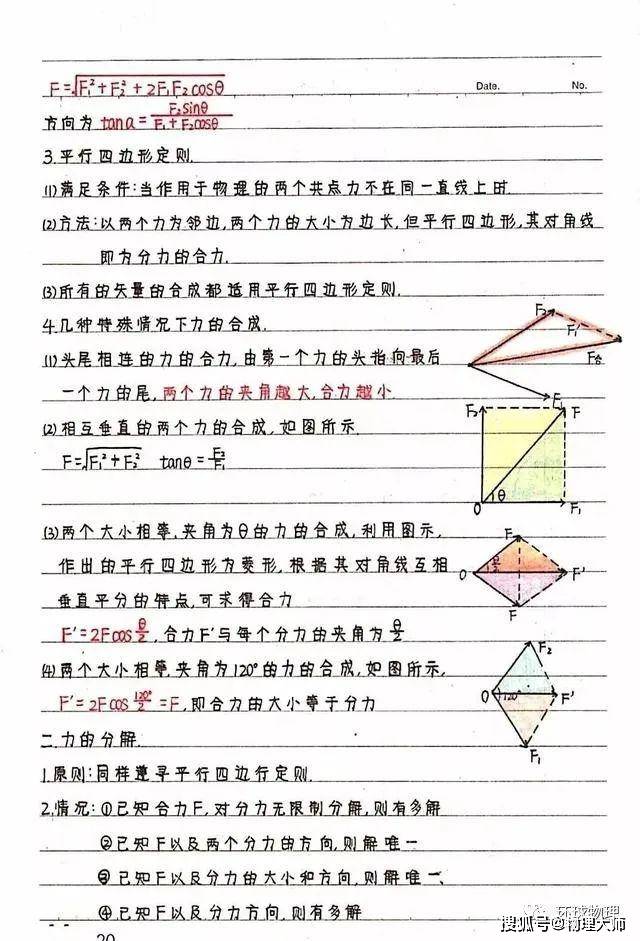 F=√F₁²+F₂²+2F₁F₂cosθ
Date. No.
方向为 tanα=F₂sinθ/F₁+F₂cosθ
3.平行四边形定则.
⑴满足条件:当作用于物理的两个共点力不在同一直线上时.
⑵方法:以两个力为邻边,两个力的大小为边长,但平行四边形,其对角线
即为分力的合力.
⑶所有的矢量的合成都适用平行四边形定则.
4.几种特殊情况下力的合成.
⑴头尾相连的力的合力,由第一个力的头指向最后
一个力的尾,两个力的夹角越大,合力越小.
F₂ F₁' F合 F₁
⑵相互垂直的两个力的合成,如图所示.
F=√F₁²+F₂² tanθ=F₂/F₁
F₂ F O θ F₁
⑶两个大小相等,夹角为θ的力的合成,利用图示,
作出的平行四边形为菱形,根据其对角线互相
垂直平分的特点,可求得合力
F'=2Fcosθ/2,合力F'与每个分力的夹角为θ/2
F O θ/2 F' F
⑷两个大小相等,夹角为120°的力的合成,如图所示,
F'=2Fcos120°/2=F,即合力的大小等于分力
F₂ O 120° F' F₁
二.力的分解.
1.原则:同样遵寻平行四边行定则.
2.情况:①已知合力F,对分力无限制分解,则有多解
②已知F以及两个分力的方向,则解唯一
③已知F以及分力的大小和方向,则解唯一、
④已知F以及分力方向,则有多解
环球物理
搜狐号@物理大师
20